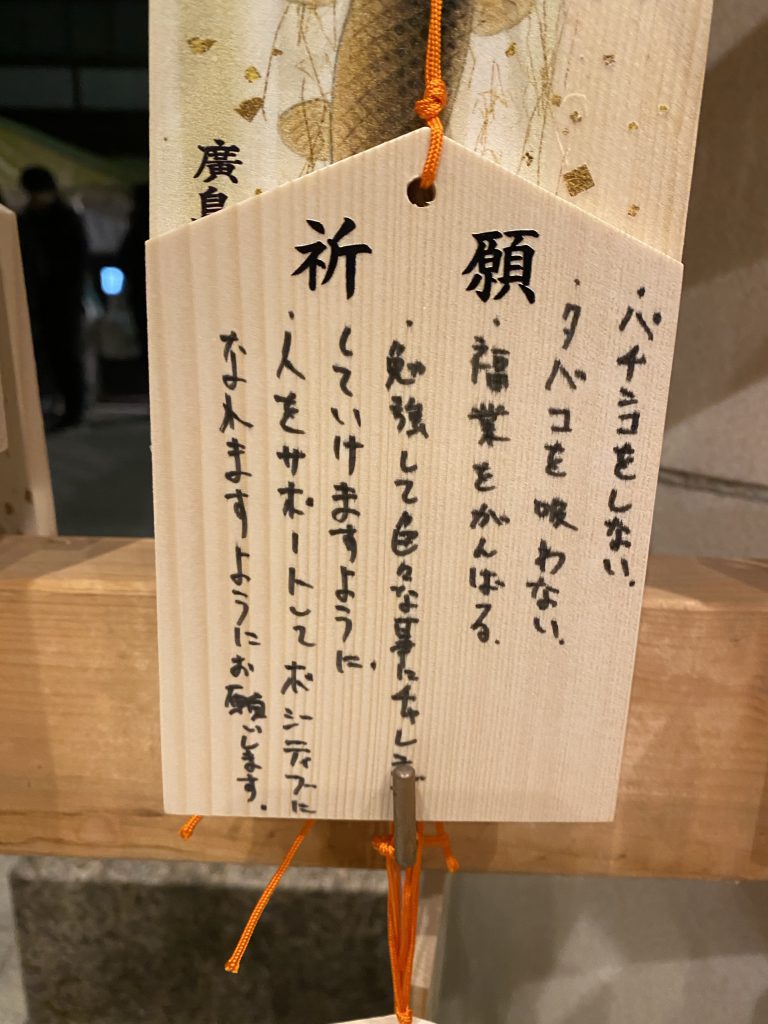 祈願
・パチンコをしない.
・タバコを吸わない.
・福業をがんばる.
・勉強して色々な事にチャレンジ
していけますように.
・人をサポートしてポジティブに
なれますようにお願いします.
廣島